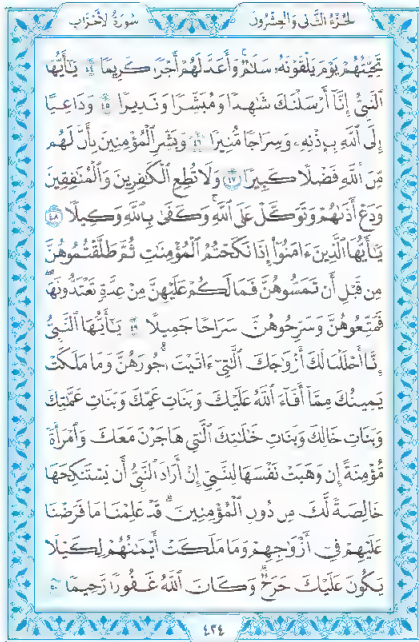 الجزء الثاني والعشرون سورة الأحزاب
تَحِيَّتُهُمْ يَوْمَ يَلْقَوْنَهُۥ سَلَٰمٌ وَأَعَدَّ لَهُمْ أَجْرًا كَرِيمًا ٤٤ يَٰٓأَيُّهَا
ٱلنَّبِىُّ إِنَّآ أَرْسَلْنَٰكَ شَٰهِدًا وَمُبَشِّرًا وَنَذِيرًا ٤٥ وَدَاعِيًا
إِلَى ٱللَّهِ بِإِذْنِهِۦ وَسِرَاجًا مُّنِيرًا ٤٦ وَبَشِّرِ ٱلْمُؤْمِنِينَ بِأَنَّ لَهُم
مِّنَ ٱللَّهِ فَضْلًا كَبِيرًا ٤٧ وَلَا تُطِعِ ٱلْكَٰفِرِينَ وَٱلْمُنَٰفِقِينَ
وَدَعْ أَذَىٰهُمْ وَتَوَكَّلْ عَلَى ٱللَّهِ وَكَفَىٰ بِٱللَّهِ وَكِيلًا ٤٨
يَٰٓأَيُّهَا ٱلَّذِينَ ءَامَنُوٓا۟ إِذَا نَكَحْتُمُ ٱلْمُؤْمِنَٰتِ ثُمَّ طَلَّقْتُمُوهُنَّ
مِن قَبْلِ أَن تَمَسُّوهُنَّ فَمَا لَكُمْ عَلَيْهِنَّ مِنْ عِدَّةٍ تَعْتَدُّونَهَا
فَمَتِّعُوهُنَّ وَسَرِّحُوهُنَّ سَرَاحًا جَمِيلًا ٤٩ يَٰٓأَيُّهَا ٱلنَّبِىُّ
إِنَّآ أَحْلَلْنَا لَكَ أَزْوَٰجَكَ ٱلَّٰتِىٓ ءَاتَيْتَ أُجُورَهُنَّ وَمَا مَلَكَتْ
يَمِينُكَ مِمَّآ أَفَآءَ ٱللَّهُ عَلَيْكَ وَبَنَاتِ عَمِّكَ وَبَنَاتِ عَمَّٰتِكَ
وَبَنَاتِ خَالِكَ وَبَنَاتِ خَٰلَٰتِكَ ٱلَّٰتِى هَاجَرْنَ مَعَكَ وَٱمْرَأَةً
مُّؤْمِنَةً إِن وَهَبَتْ نَفْسَهَا لِلنَّبِىِّ إِنْ أَرَادَ ٱلنَّبِىُّ أَن يَسْتَنكِحَهَا
خَالِصَةً لَّكَ مِن دُونِ ٱلْمُؤْمِنِينَ قَدْ عَلِمْنَا مَا فَرَضْنَا
عَلَيْهِمْ فِىٓ أَزْوَٰجِهِمْ وَمَا مَلَكَتْ أَيْمَٰنُهُمْ لِكَيْلَا
يَكُونَ عَلَيْكَ حَرَجٌ وَكَانَ ٱللَّهُ غَفُورًا رَّحِيمًا ٥٠
٤٢٤